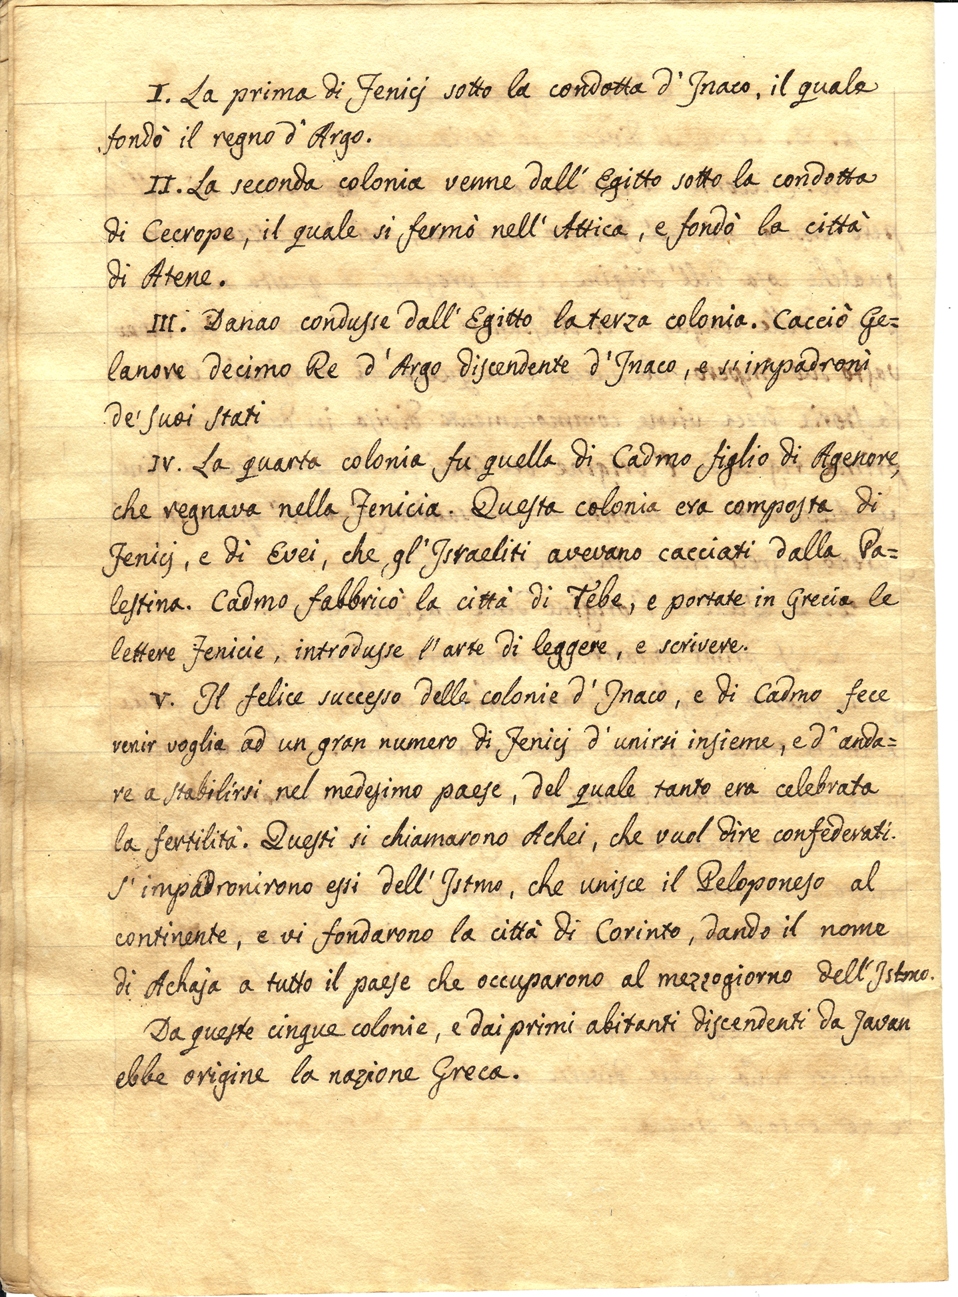 I. La prima di Fenicj sotto la condotta d'Inaco, il quale
fondò il regno d'Argo.
II. La seconda colonia venne dall'Egitto sotto la condotta
di Cecrope, il quale si fermò nell'Attica, e fondò la città
di Atene.
III. Danao condusse dall'Egitto la terza colonia. Cacciò Ge=
lanore decimo Re d'Argo discendente d'Inaco, e s'impadronì
de' suoi stati
IV. La quarta colonia fu quella di Cadmo figlio di Agenore,
che regnava nella Fenicia. Questa colonia era composta di
Fenicj, e di Evei, che gl'Israeliti avevano cacciati dalla Pa=
lestina. Cadmo fabbricò la città di Tebe, e portate in Grecia le
lettere Fenicie, introdusse l'arte di leggere, e scrivere.
V. Il felice successo delle colonie d'Inaco, e di Cadmo fece
venir voglia ad un gran numero di Fenicj d'unirsi insieme, e d'anda=
re a stabilirsi nel medesimo paese, del quale tanto era celebrata
la fertilità. Questi si chiamarono Achei, che vuol dire confederati.
S'impadronirono essi dell'Istmo, che unisce il Peloponeso al
continente, e vi fondarono la città di Corinto, dando il nome
di Achaja a tutto il paese che occuparono al mezzogiorno dell'Istmo.
Da queste cinque colonie, e dai primi abitanti discendenti da Javan
ebbe origine la nazione Greca.